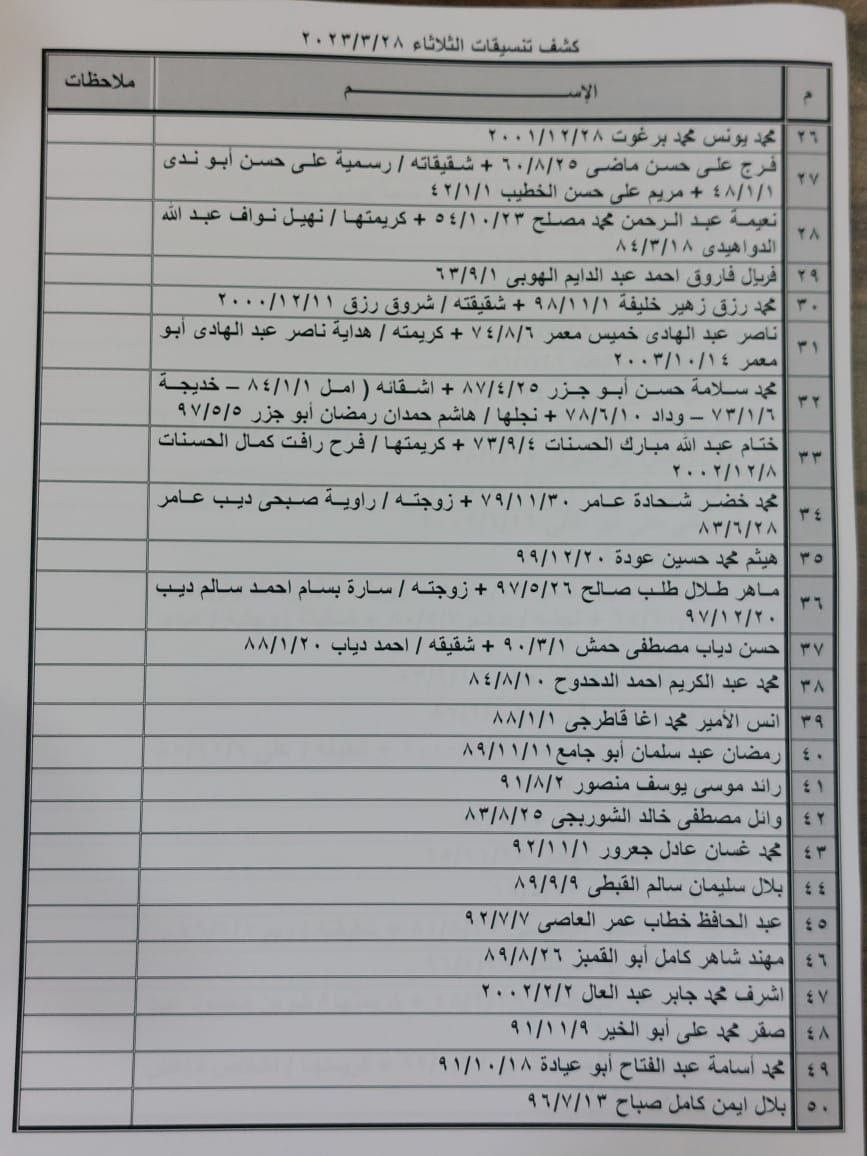 كشف تنسيقات الثلاثاء ٢٠٢٣/٣/٢٨
م الإســـــــــــم ملاحظات
٢٦ محمد يونس محمد برغوت ٢٠٠١/١٢/٢٨
٢٧ فرج على حسن ماضى ٦٠/٨/٢٥ + شقيقاته / رسمية على حسن أبو ندى
٤٨/١/١ + مريم على حسن الخطيب ٤٢/١/١
٢٨ نعيمة عبد الرحمن محمد مصلح ٥٤/١٠/٢٣ + كريمتها / نهيل نواف عبد الله
الدواهيدى ٨٤/٣/١٨
٢٩ فريال فاروق احمد عبد الدايم الهوبى ٦٣/٩/١
٣٠ محمد رزق زهير خليفة ٩٨/١١/١ + شقيقته / شروق رزق ٢٠٠٠/١٢/١١
٣١ ناصر عبد الهادى خميس معمر ٧٤/٨/٦ + كريمته / هداية ناصر عبد الهادى أبو
معمر ٢٠٠٣/١٠/١٤
٣٢ محمد سلامة حسن أبو جزر ٨٧/٤/٢٥ + اشقائه ( امل ٨٤/١/١ – خديجة
٧٣/١/٦ – وداد ٧٨/٦/١٠ + نجلها / هاشم حمدان رمضان أبو جزر ٩٧/٥/٥
٣٣ ختام عبد الله مبارك الحسنات ٧٣/٩/٤ + كريمتها / فرح رافت كمال الحسنات
٢٠٠٢/١٢/٨
٣٤ محمد خضر شحادة عامر ٧٩/١١/٣٠ + زوجته / راوية صبحى ديب عامر
٨٣/٦/٢٨
٣٥ هيثم محمد حسين عودة ٩٩/١٢/٢٠
٣٦ ماهر طلال طلب صالح ٩٧/٥/٢٦ + زوجته / سارة بسام احمد سالم ديب
٩٧/١٢/٢٠
٣٧ حسن دياب مصطفى حمش ٩٠/٣/١ + شقيقه / احمد دياب ٨٨/١/٢٠
٣٨ محمد عبد الكريم احمد الدحدوح ٨٤/٨/١٠
٣٩ انس الأمير محمد اغا قاطرجى ٨٨/١/١
٤٠ رمضان عبد سلمان أبو جامع ٨٩/١١/١١
٤١ رائد موسى يوسف منصور ٩١/٨/٢
٤٢ وائل مصطفى خالد الشوربجى ٨٣/٨/٢٥
٤٣ محمد غسان عادل جعرور ٩٢/١١/١
٤٤ بلال سليمان سالم القبطى ٨٩/٩/٩
٤٥ عبد الحافظ خطاب عمر العاصى ٩٢/٧/٧
٤٦ مهند شاهر كامل أبو القمبز ٨٩/٨/٢٦
٤٧ اشرف محمد جابر عبد العال ٢٠٠٢/٢/٢
٤٨ صقر محمد على أبو الخير ٩١/١١/٩
٤٩ محمد أسامة عبد الفتاح أبو عيادة ٩١/١٠/١٨
٥٠ بلال ايمن كامل صباح ٩٦/٧/١٣